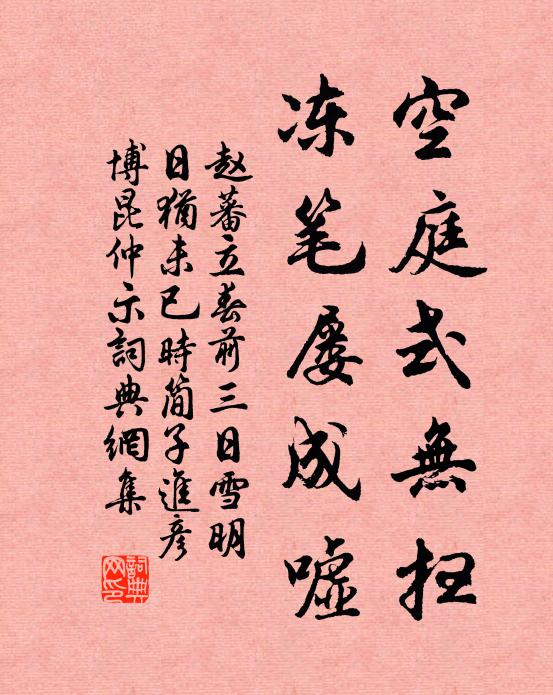 空庭式無扫
冻笔屡成嘘
赵蕃立春前三日雪明
日犹未已時简子進彦
博昆仲示詞典網集
詞典网印